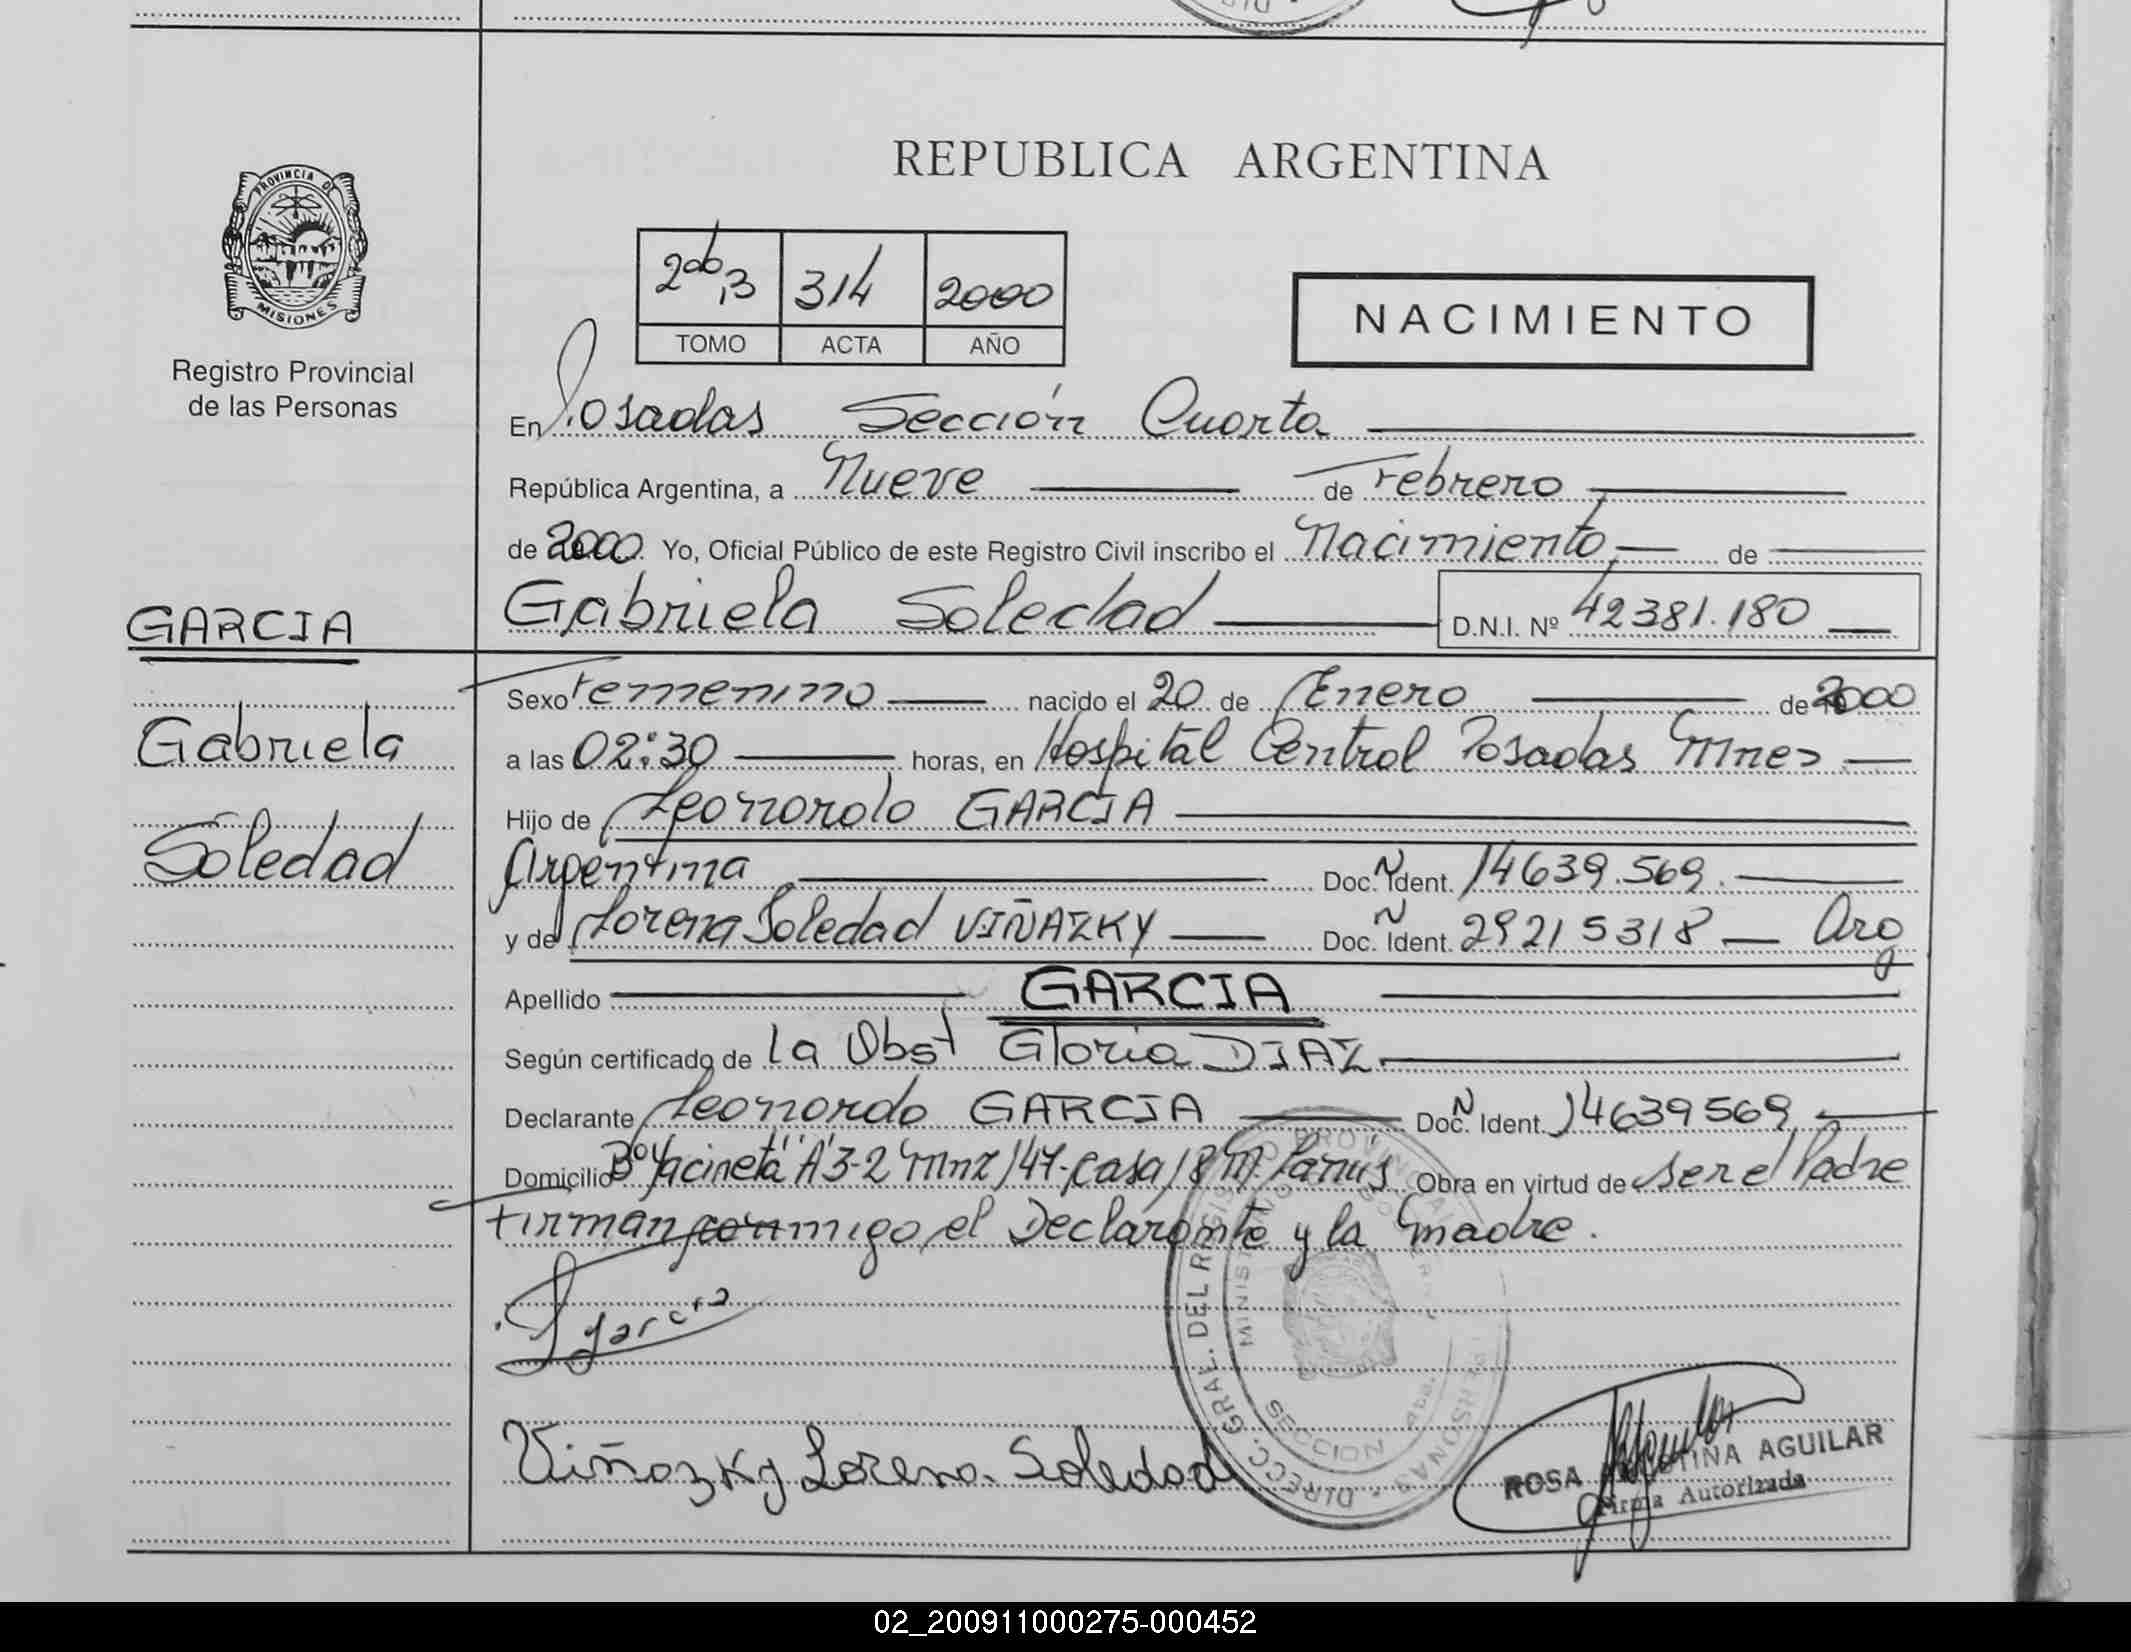 PROVINCIA DE
MISIONES
Registro Provincial
de las Personas
REPUBLICA ARGENTINA
314 2000
TOMO ACTA AÑO
NACIMIENTO
En Posadas Sección Cuarta
República Argentina, a Nueve de Febrero
de 2000 Yo, Oficial Público de este Registro Civil inscribo el Nacimiento de
GARCIA
Gabriela
Soledad
Gabriela Soledad D.N.I. Nº 42381.180
Sexo Femenino nacido el 20 de Enero de 2000
a las 02:30 horas, en Hospital Central Posadas Mnes
Hijo de Leonardo GARCIA
Argentina Doc. N Ident. 14639.569.
y de Lorena Soledad VIÑAZKY Doc. Ñ Ident. 29215318 Arg
Apellido GARCIA
Según certificado de la Obst Gloria DIAZ
Declarante Leonardo GARCIA Doc. N Ident. 14639569
Domicilio Bº Yacireta A3-2 Mnz 147 casa 18 M. Lanús Obra en virtud de ser el Padre
Firman conmigo el Declarante y la madre.
garcia
Viñazky Lorena Soledad
DIRECC. GRAL. DEL REGISTRO PROVINCIAL PERSONAS
SECCION 4ta.
ROSA AGUILAR
Firma Autorizada
02_200911000275-000452